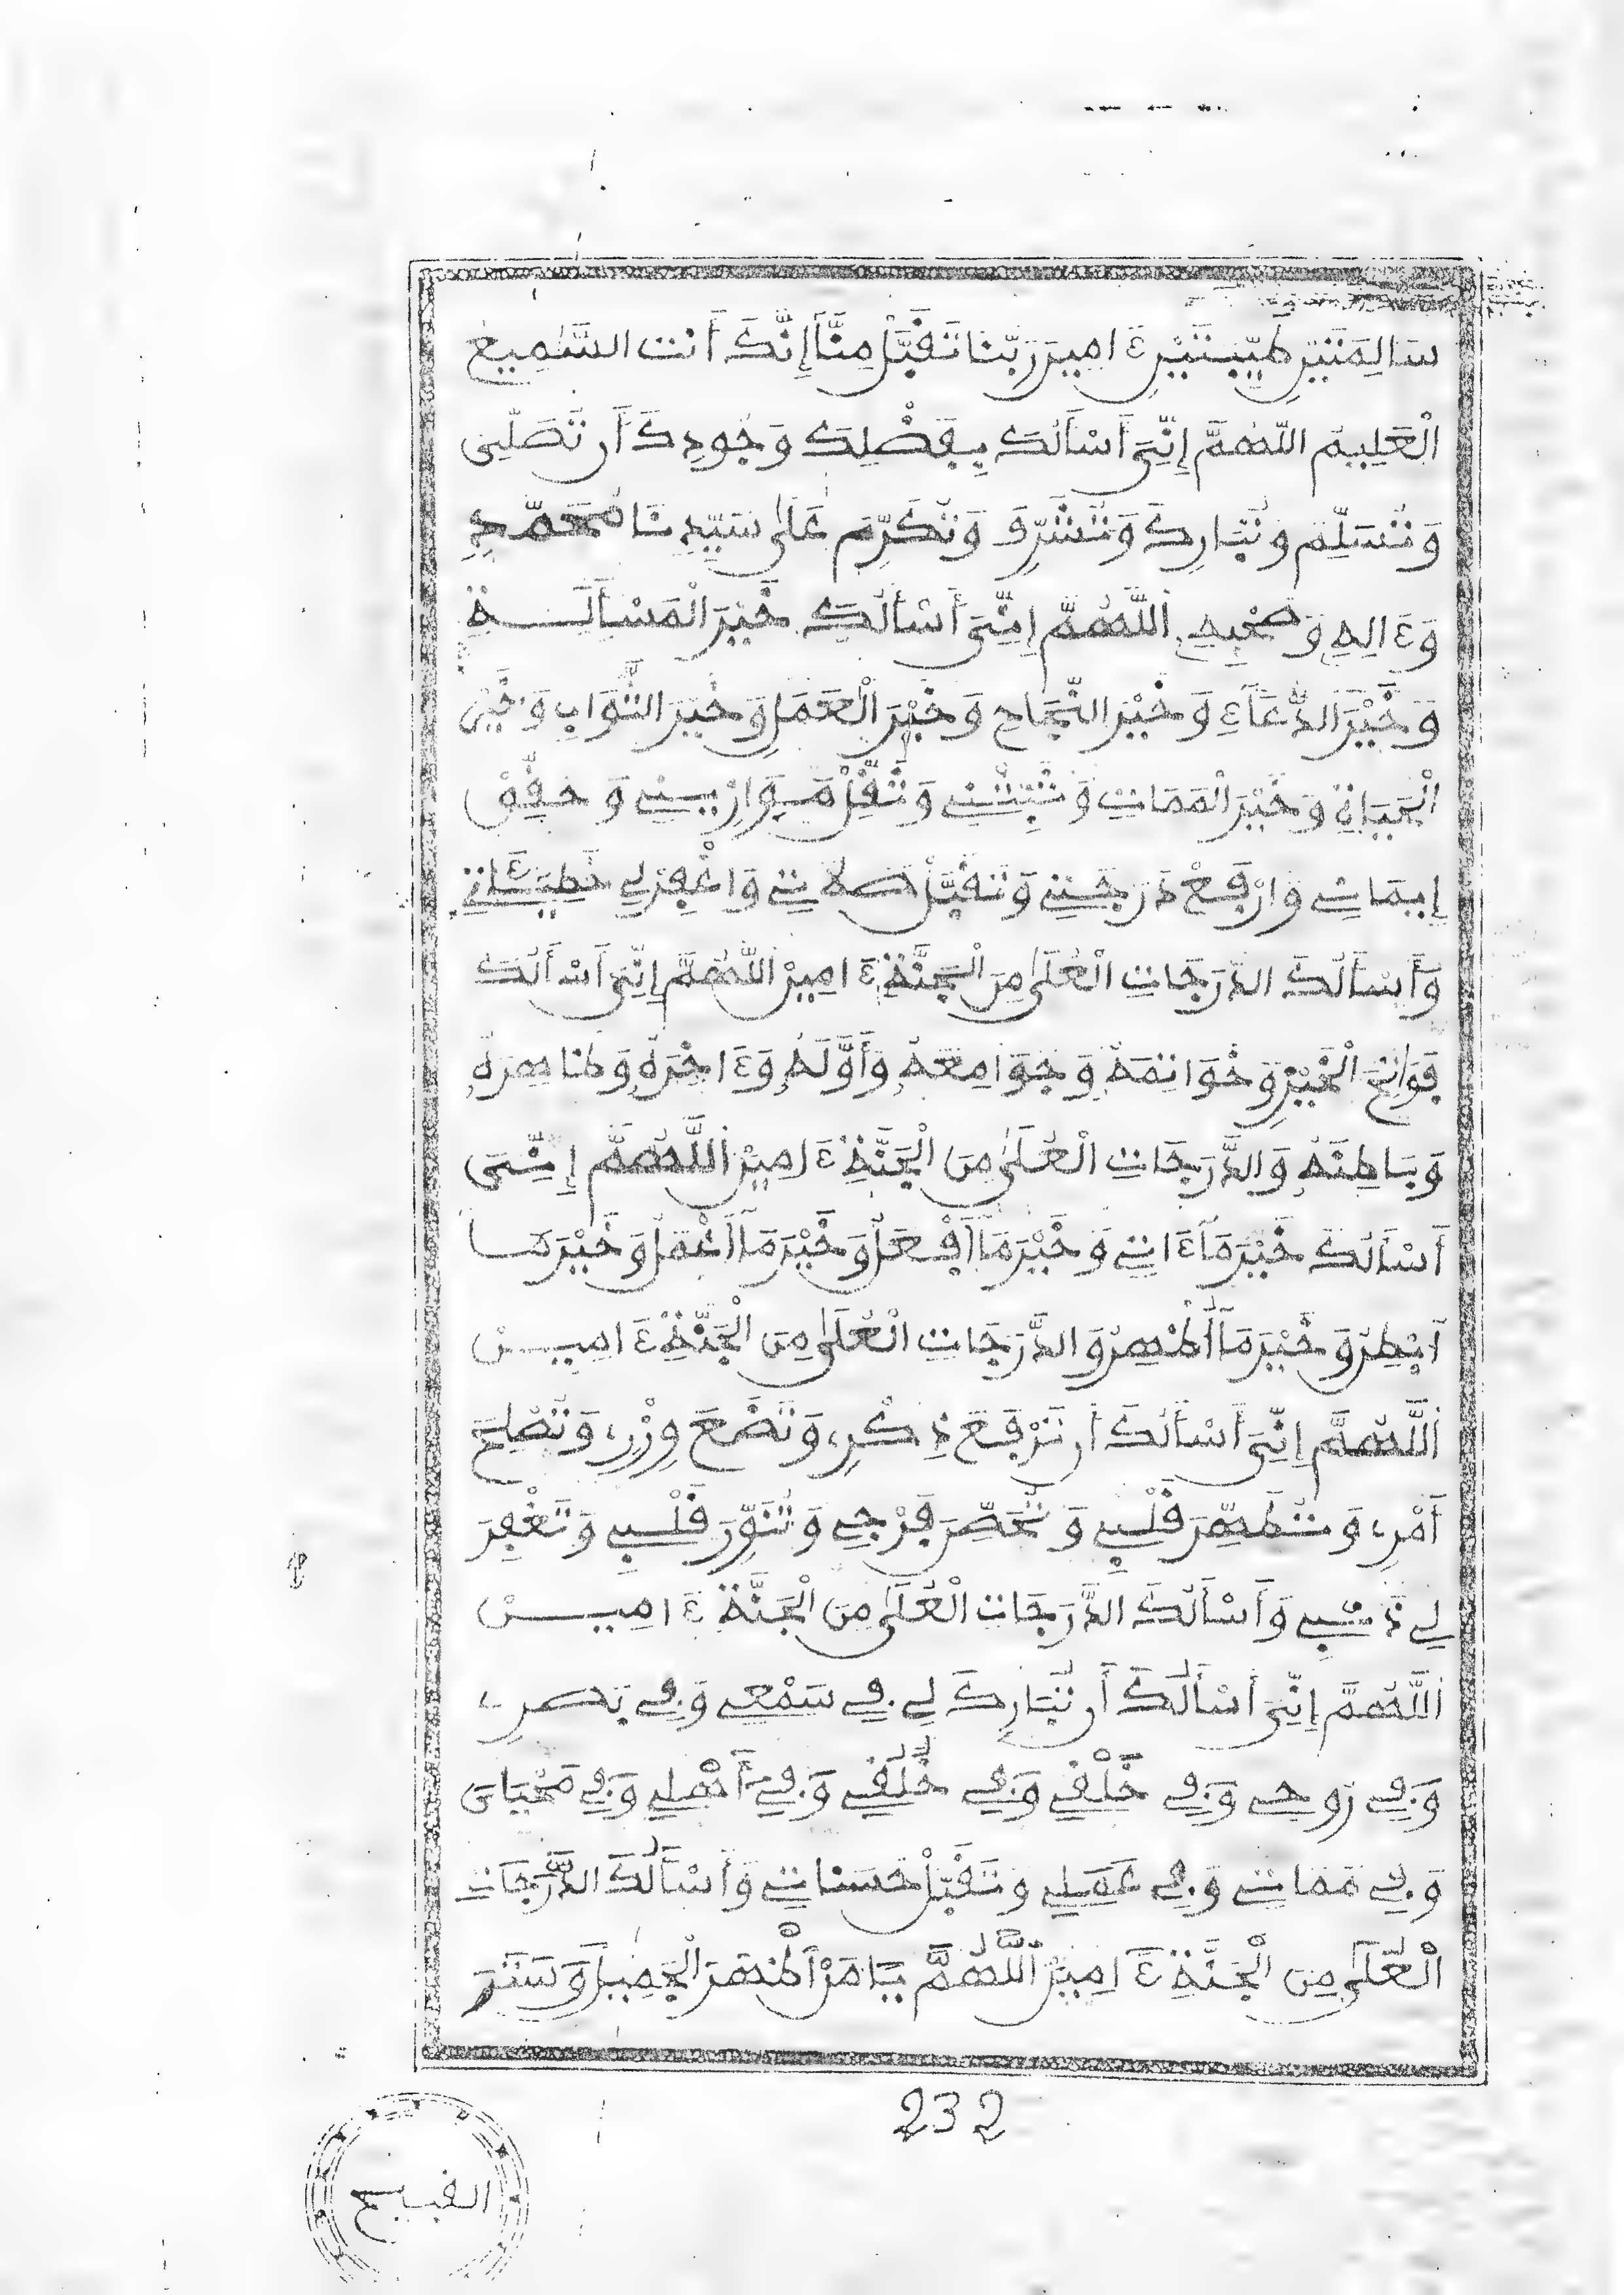 سَالِمَتَيْنِ طَيِّبَتَيْنِ ءَامِين رَبَّنَا تَقَبَّلْ مِنَّا إِنَّكَ أَنتَ السَّمِيعُ
الْعَلِيمُ اللَّهُمَّ إِنِّي أَسْأَلُكَ بِفَضْلِكَ وَجُودِكَ أَن تُصَلِّيَ
وَتُسَلِّمَ وَتُبَارِكَ وَتُشَرِّفَ وَتُكَرِّمَ عَلَىٰ سَيِّدِنَا مُحَمَّدٍ
وَءَالِهِ وَصَحْبِهِ اللَّهُمَّ إِنِّي أَسْأَلُكَ خَيْرَ الْمَسْأَلَةِ
وَخَيْرَ الدُّعَاءِ وَخَيْرَ النَّجَاحِ وَخَيْرَ الْعَمَلِ وَخَيْرَ الثَّوَابِ وَخَيْرَ
الْحَيَاةِ وَخَيْرَ الْمَمَاتِ وَثَبِّتْنِي وَثَقِّلْ مَوَازِينِي وَحَقِّقْ
إِيمَانِي وَارْفَعْ دَرَجَتِي وَتَقَبَّلْ صَلَاتِي وَاغْفِرْ لِي خَطِيئَاتِي
وَأَسْأَلُكَ الدَّرَجَاتِ الْعُلَىٰ مِنَ الْجَنَّةِ ءَامِينْ اللَّهُمَّ إِنِّي أَسْأَلُكَ
فَوَاتِحَ الْخَيْرِ وَخَوَاتِمَهُ وَجَوَامِعَهُ وَأَوَّلَهُ وَءَاخِرَهُ وَظَاهِرَهُ
وَبَاطِنَهُ وَالدَّرَجَاتِ الْعُلَىٰ مِنَ الْجَنَّةِ ءَامِينْ اللَّهُمَّ إِنِّي
أَسْأَلُكَ خَيْرَ مَا ءَاتِي وَخَيْرَ مَا أَفْعَلُ وَخَيْرَ مَا أَعْمَلُ وَخَيْرَ مَا
أَبْطِنُ وَخَيْرَ مَا أَظْهِرُ وَالدَّرَجَاتِ الْعُلَىٰ مِنَ الْجَنَّةِ ءَامِينْ
اللَّهُمَّ إِنِّي أَسْأَلُكَ أَن تَرْفَعَ ذِكْرِي وَتَضَعَ وِزْرِي وَتُصْلِحَ
أَمْرِي وَتُطَهِّرَ قَلْبِي وَتُحَصِّنَ فَرْجِي وَتُنَوِّرَ قَلْبِي وَتَغْفِرَ
لِي ذَنبِي وَأَسْأَلُكَ الدَّرَجَاتِ الْعُلَىٰ مِنَ الْجَنَّةِ ءَامِينْ
اللَّهُمَّ إِنِّي أَسْأَلُكَ أَن تُبَارِكَ لِي فِي سَمْعِي وَفِي بَصَرِي
وَفِي رُوحِي وَفِي خَلْقِي وَفِي خُلُقِي وَفِي أَهْلِي وَفِي مَحْيَايَ
وَفِي مَمَاتِي وَفِي عَمَلِي وَتَقَبَّلْ حَسَنَاتِي وَأَسْأَلُكَ الدَّرَجَاتِ
الْعُلَىٰ مِنَ الْجَنَّةِ ءَامِينْ اللَّهُمَّ يَا مَنْ أَظْهَرَ الْجَمِيلَ وَسَتَرَ
232
القبيح